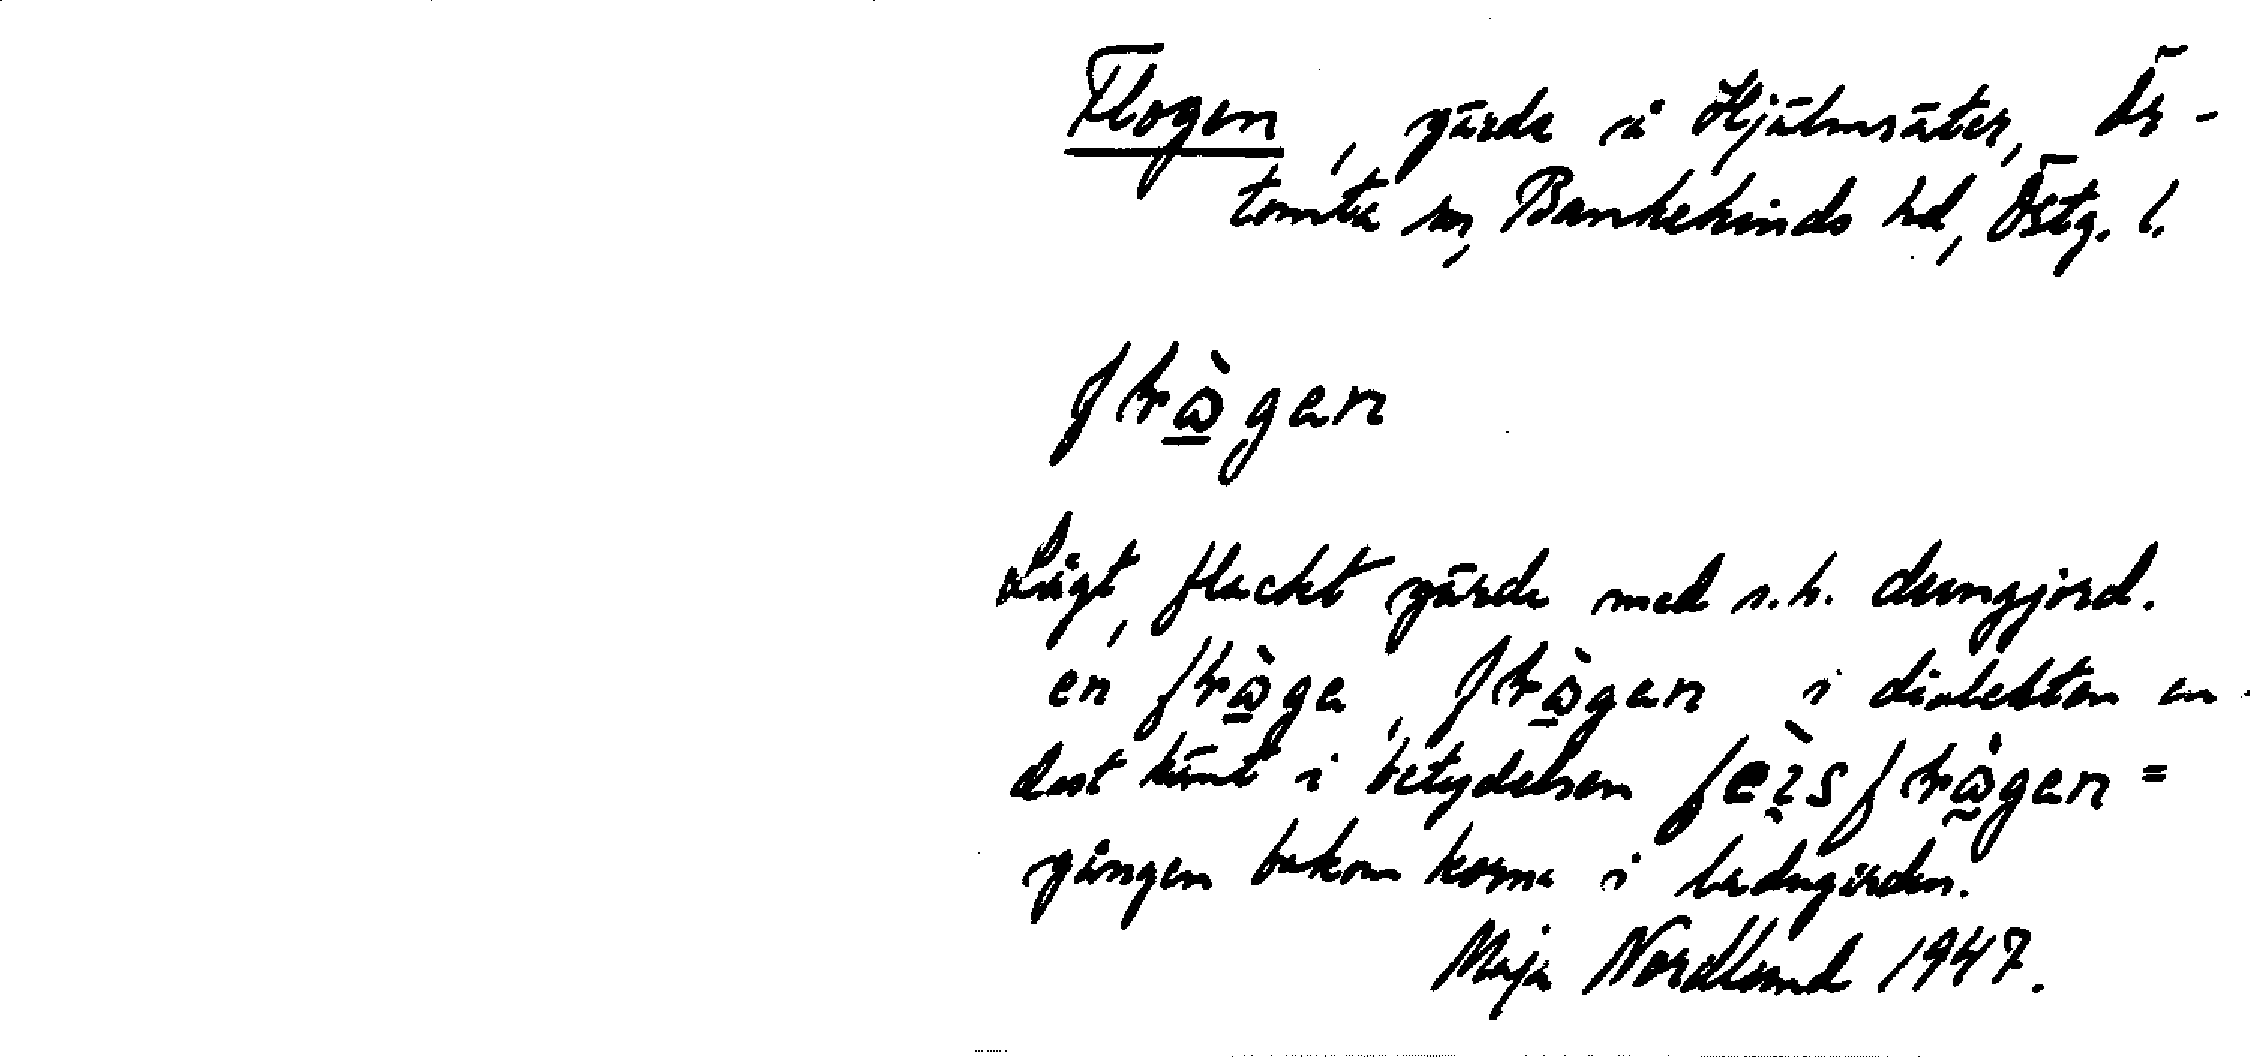 Flogen, gärde i Hjälmsäter, Ör-
tomta sn, Bankekinds hd, Östg. l.
Lågt, flackt gärde med s.k. dungjord.
en i dialekten en-
dast känt i betydelsen =
gången bakom korna i ladugården.
Maja Nordlund 1947.